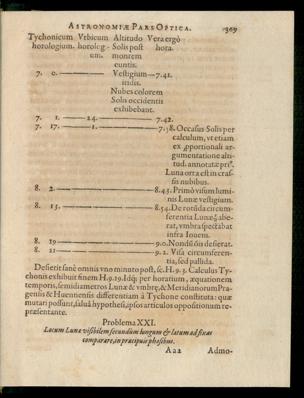 ASTRONOMIÆ PARS OPTICA. 369
Tychonicum Vrbicum Altitudo Vera ergò
horologium. horolog- Solis post hora.
um. montem
euntis.
7. 0. Vestigium 7. 41.
iridis.
Nubes colorem
Solis occidentis
exhibebant.
7. 1. 24. 7. 42.
7. 17. 1. 7. 58. Occasus Solis per
calculum, vt etiam
ex proportionali ar-
gumentatione alti-
tud. annotatæ
Luna orta est in cras-
sis nubibus.
8. 2. 8. 43. Primò visum lumi-
nis Lunæ vestigium.
8. 13. 8. 54. De rotūda circum-
ferentia Lunæ abe-
rat, vmbra spectabat
infra Iovem.
8. 19 9. 0. Nondū ōis deerat.
8. 21 9. 2. Visa circumferen-
tia, sed pallida.
Desierit sanè omnis vno minuto post, sc. H. 9. 3. Calculus Ty-
chonis exhibuit finem H. 9. 19. Idq; per horarium, æquationem
temporis, semidiametros Lunæ & vmbræ, & Meridianorum Pra-
gensis & Huennensis differentiam à Tychone constituta: quæ
mutari possunt, salvâ hypothesi, ipsos articulos oppositionum re-
præsentante.
Problema XXI.
Locum Lunæ visibilem secundùm longum & latum ad fixas
comparare, in præcipuis phasibus.
Aaa Admo-